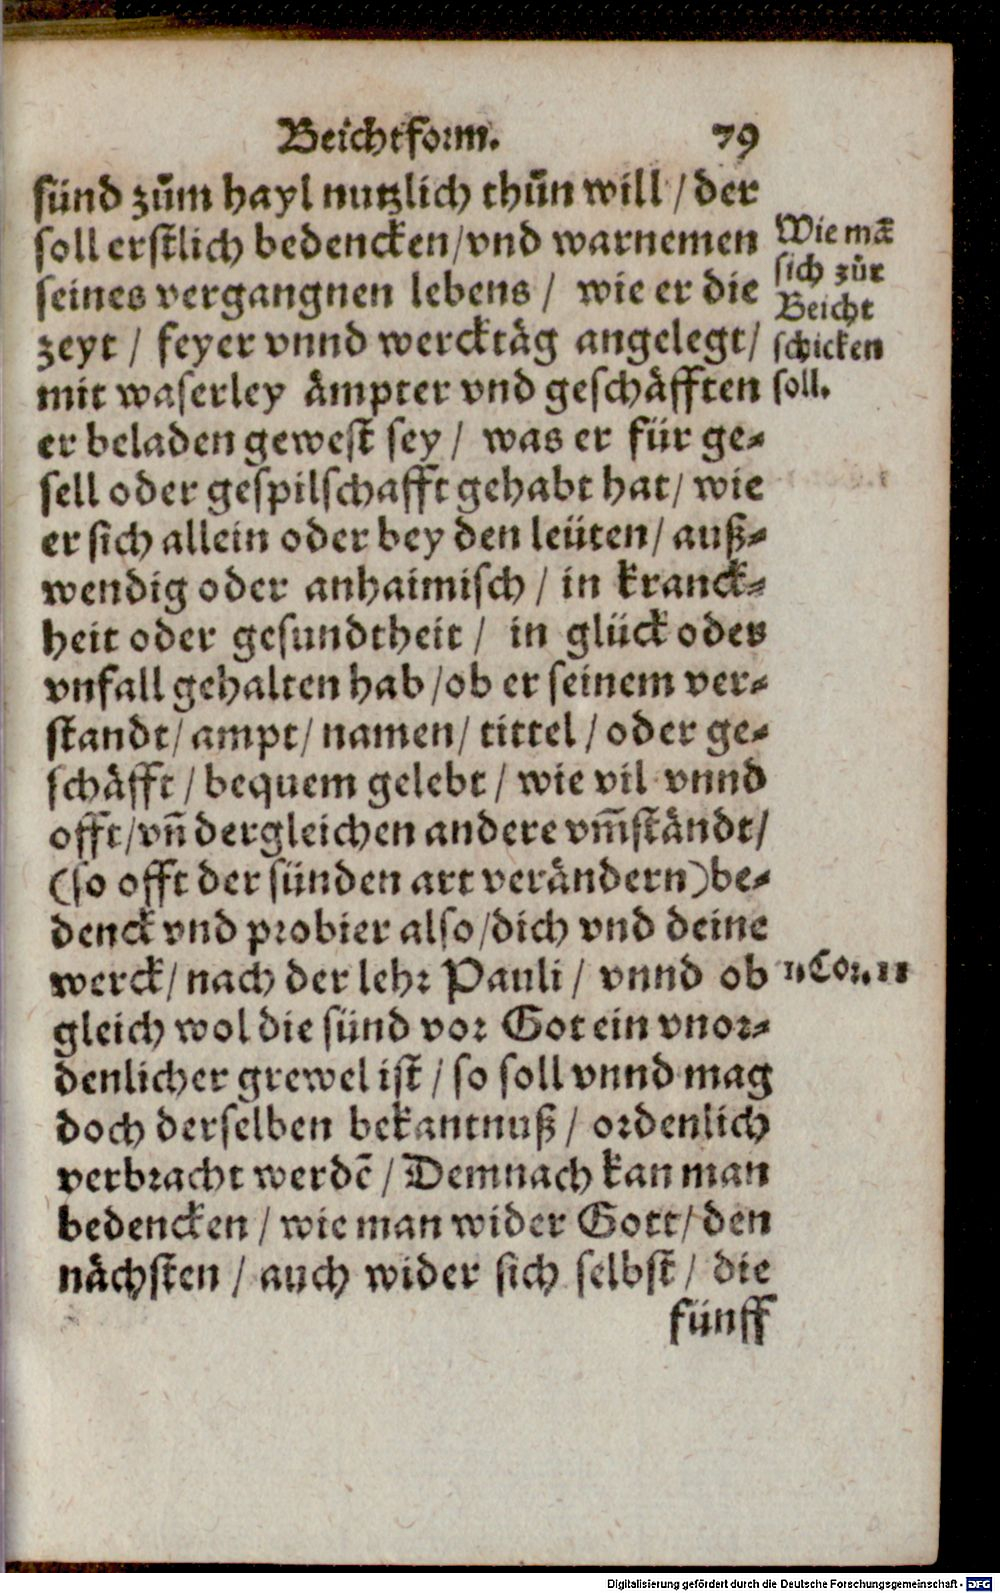 Beichtform. 79
sünd zům hayl nutzlich thůn will / der
soll erstlich bedencken/vnd warnemen
seines vergangnen lebens / wie er die
zeyt / feyer vnnd wercktäg angelegt/
mit waserley ämpter vnd geschäfften
er beladen gewest sey / was er für ge-
sell oder gespilschafft gehabt hat/ wie
er sich allein oder bey den leüten/ auß-
wendig oder anhaimisch / in kranck-
heit oder gesundtheit / in glück oder
vnfall gehalten hab /ob er seinem ver-
standt/ ampt/ namen/ tittel / oder ge-
schäfft / bequem gelebt / wie vil vnnd
offt/vn̄ dergleichen andere vm̄ständt/
(so offt der sünden art verändern)be-
denck vnd probier also/dich vnd deine
werck/ nach der lehr Pauli / vnnd ob
gleich wol die sünd vor Got ein vnor-
denlicher grewel ist / so soll vnnd mag
doch derselben bekantnuß / ordenlich
verbracht werdē / Demnach kan man
bedencken / wie man wider Gott/ den
nächsten / auch wider sich selbst / die
fünff
Wie mā
sich zůr
Beicht
schicken
soll.
1.Cor. 11
Digitalisierung gefördert durch die Deutsche Forschungsgemeinschaft - DFG